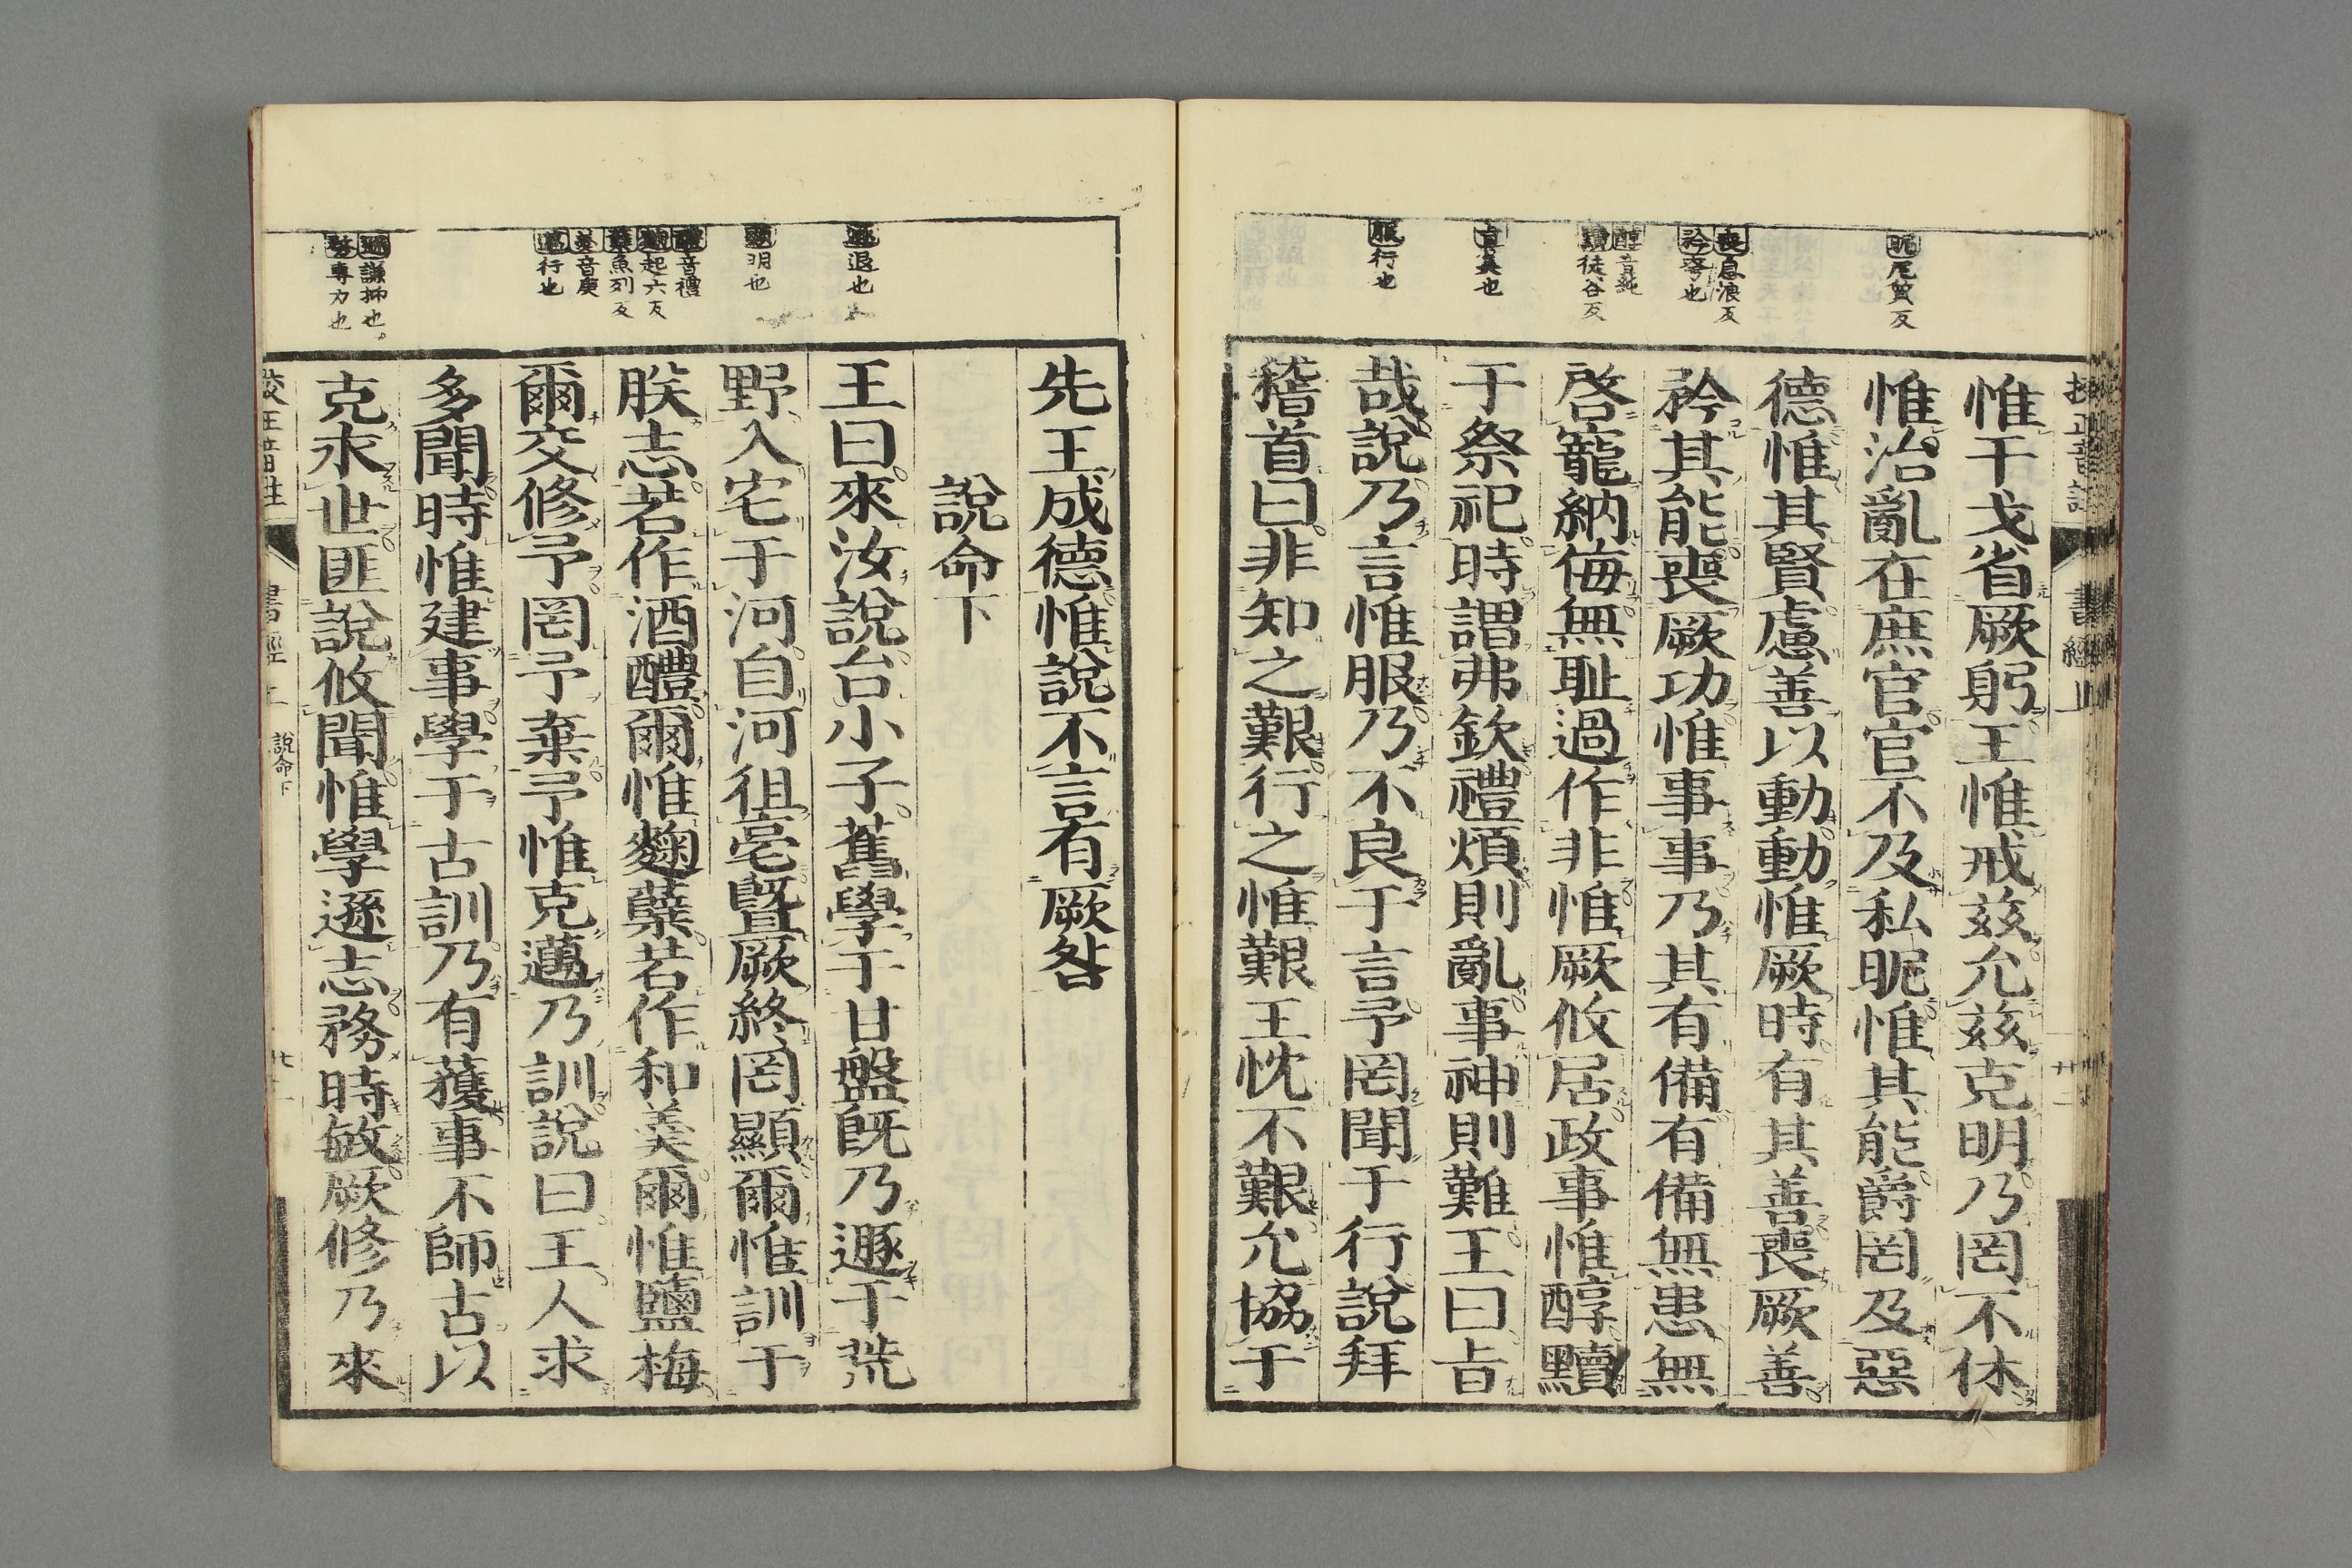 惟干戈省厥躬王惟戒玆允玆克明乃罔不休
惟治亂在庶官官不及私昵惟其能爵罔及惡
德惟其賢慮善以動動惟厥時有其善喪厥善
矜其能喪厥功惟事事乃其有備有備無患無
啓寵納侮無耻過作非惟厥攸居政事惟醇黷
于祭祀時謂弗欽禮煩則亂事神則難王曰旨
哉說乃言惟服乃不良于言予罔聞于行說拜
稽首曰非知之艱行之惟艱王忱不艱允協于
昵尼質反
喪息浪反
矜夸也
醇音純
黷徒谷反
旨美也
服行也
書經上
先王成德惟說不言有厥咎
說命下
王曰來汝說台小子舊學于甘盤旣乃遯于荒
野入宅于河自河徂亳曁厥終罔顯爾惟訓于
朕志若作酒醴爾惟麴糵若作和羹爾惟鹽梅
爾交修予罔予棄予惟克邁乃訓說曰王人求
多聞時惟建事學于古訓乃有獲事不師古以
克永世匪說攸聞惟學遜志務時敏厥修乃來
遯退也
顯明也
醴音禮
麴起六反
糵魚列反
羹音庚
邁行也
遜謙抑也
敏專力也
書經上
說命下